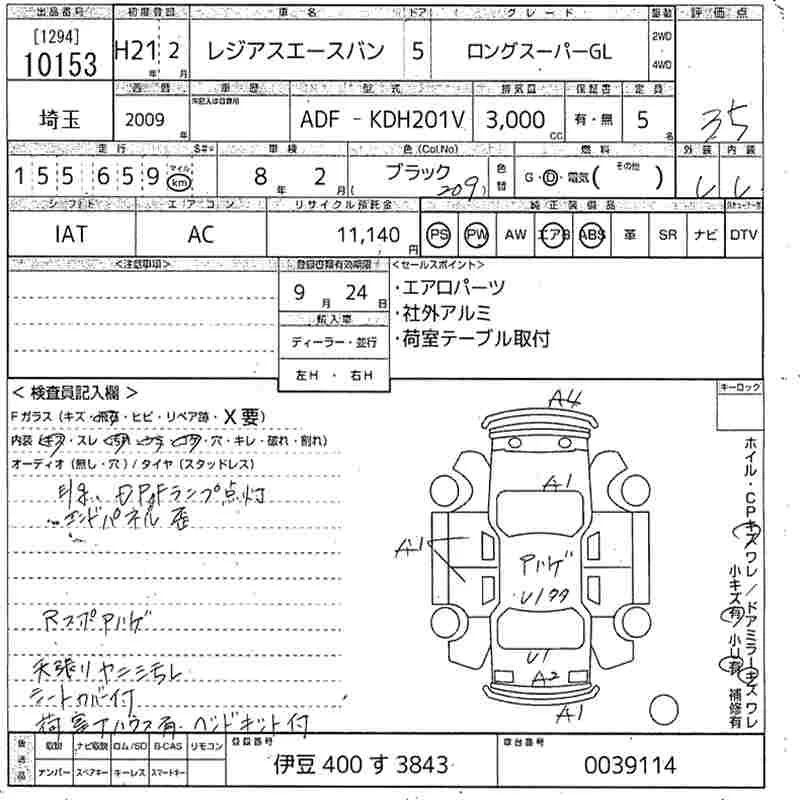 出品番号 初度登録 車名 ドア グレード 駆動 評価点
[1294]
10153 H21年 2月 レジアスエースバン 5 ロングスーパーGL 2WD 4WD
西暦 車歴 型式 排気量 保証書 定員
埼玉 2009年 ADF - KDH201V 3,000cc 有・無 5名 3.5
走行 車検 色(Col.No) 燃料 外装 内装
155 659 マイル km 8年 2月 ブラック (209) 色替 G・D・電気( その他 )
シフト エアコン リサイクル預託金 純正装備品
IAT AC 11,140円 PS PW AW エアB ABS 革 SR ナビ DTV
<注意事項> 登録書類有効期限 <セールスポイント>
9月 24日 ・エアロパーツ
輸入車 ・社外アルミ
ディーラー・並行 ・荷室テーブル取付
左H・右H
< 検査員記入欄 > キーロック
Fガラス (キズ・飛石・ヒビ・リペア跡・X要)
内装 (キズ・スレ・穴・キレ・破れ・割れ)
オーディオ (無し・穴) / タイヤ (スタッドレス)
DPFランプ点灯
エンドパネル歪
天張りヤニシミヨレ
シートカバー付
ベッドキット付
A4
A1
A1
Aハゲ
U1
A2
A1
ホイル・CPキズワレ/ドアミラーキズワレ
小キズ有 小U有 補修有
後送品 取説 ナビ取説 ロム/SD B-CAS リモコン 登録番号 車台番号
ナンバー スペアキー キーレス スマートキー 伊豆 400 す 3843 0039114